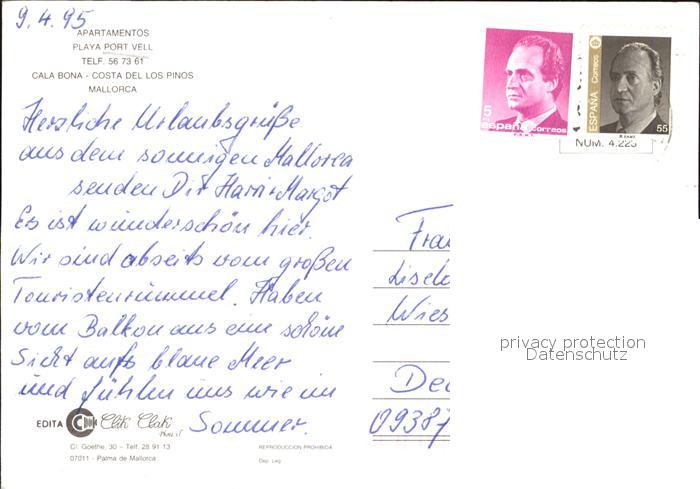 9.4.95
APARTAMENTOS
PLAYA PORT VELL
TELF. 56 73 61
CALA BONA - COSTA DEL LOS PINOS
MALLORCA
5
españa correos
ESPAÑA Correos
55
NUM. 4.223
Herzliche Urlaubsgrüße
aus dem sonnigen Mallorca
senden Dir Harri+Margot
Es ist wunderschön hier.
Wir sind abseits vom großen
Touristenrummel. Haben
vom Balkon aus eine schöne
Sicht aufs blaue Meer
und fühlen uns wie im
Sommer.
Frau
Liselo
Wies
Deu
09387
privacy protection
Datenschutz
EDITA Clik Clak
C/. Goethe, 30 – Telf. 28 91 13
07011 - Palma de Mallorca
REPRODUCCION PROHIBIDA
Dep. Leg